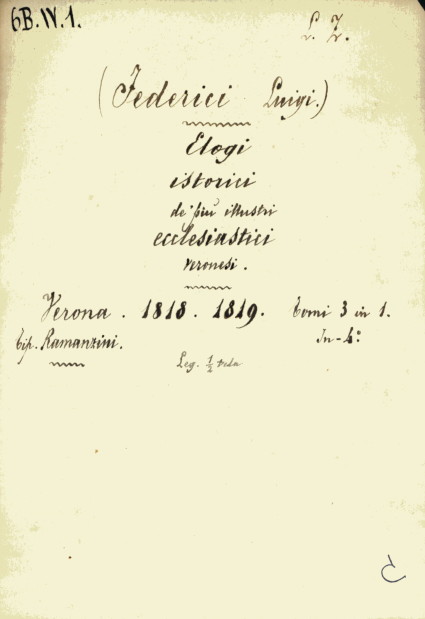 6B.IV.1.
L. Z.
(Federici Luigi.)
Elogi
istorici
de' più illustri
ecclesiastici
veronesi.
Verona. 1818. 1819. Tomi 3 in 1.
Tip. Ramanzini. In-4°
Leg. 1/2 tela
C